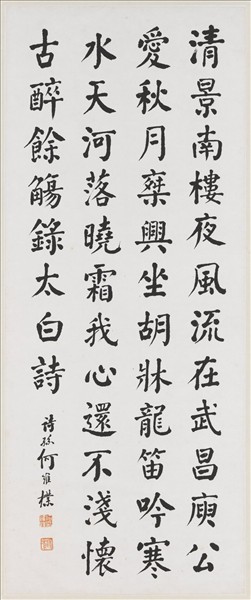 清景南樓夜風流在武昌庾公
愛秋月椉興坐胡牀龍笛吟寒
水天河落曉霜我心還不淺懷
古醉餘觴錄太白詩
詩孫何維樸